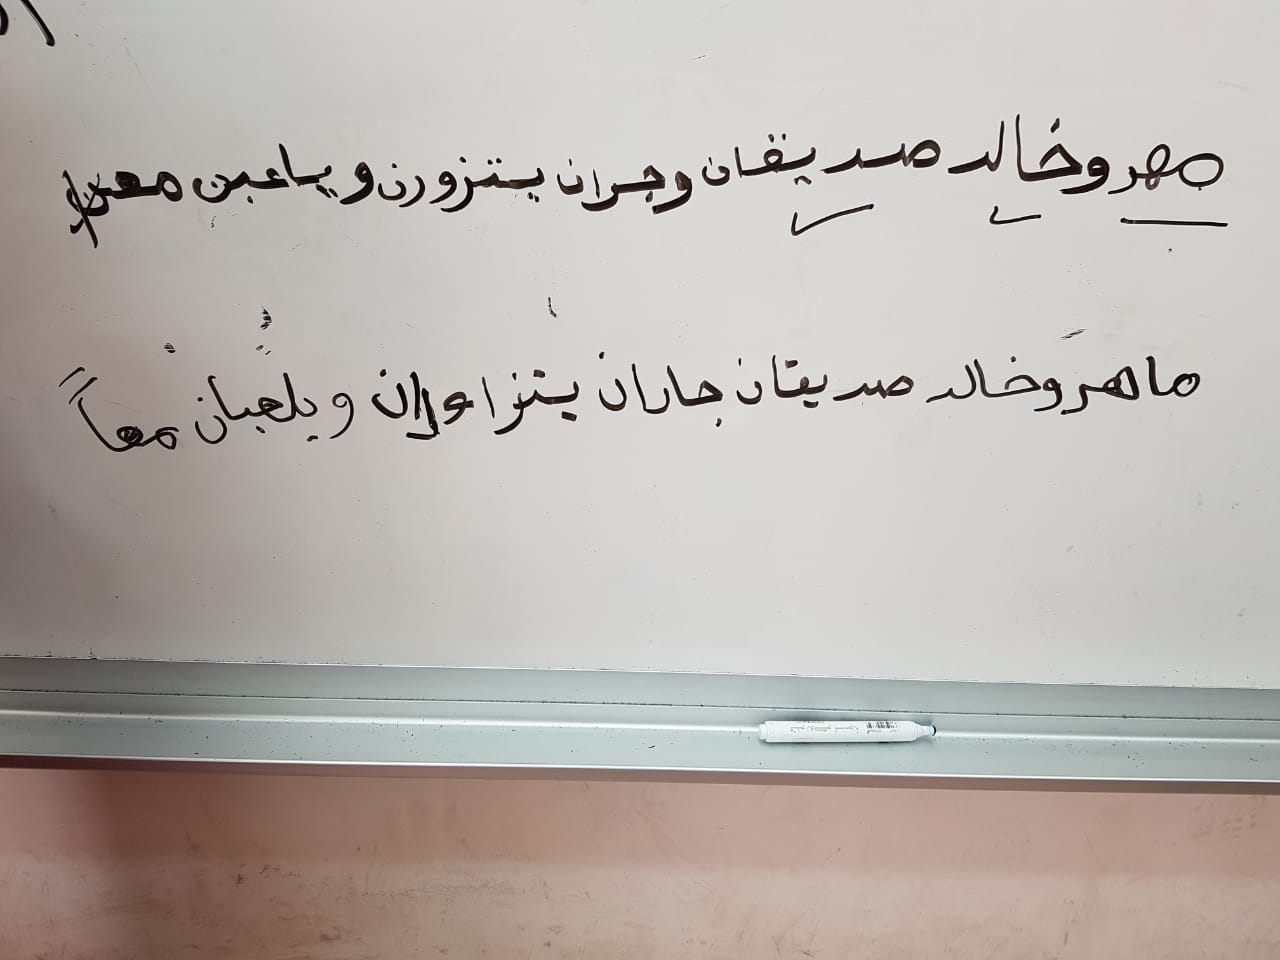 مهر وخالد صديقان وجران يتزورن وياعبن معن
ماهر وخالد صديقان جاران يتزاوران ويلعبان معاً